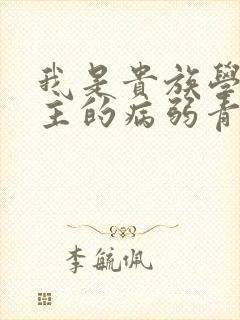 我是貴族學
主的病弱青
李毓佩